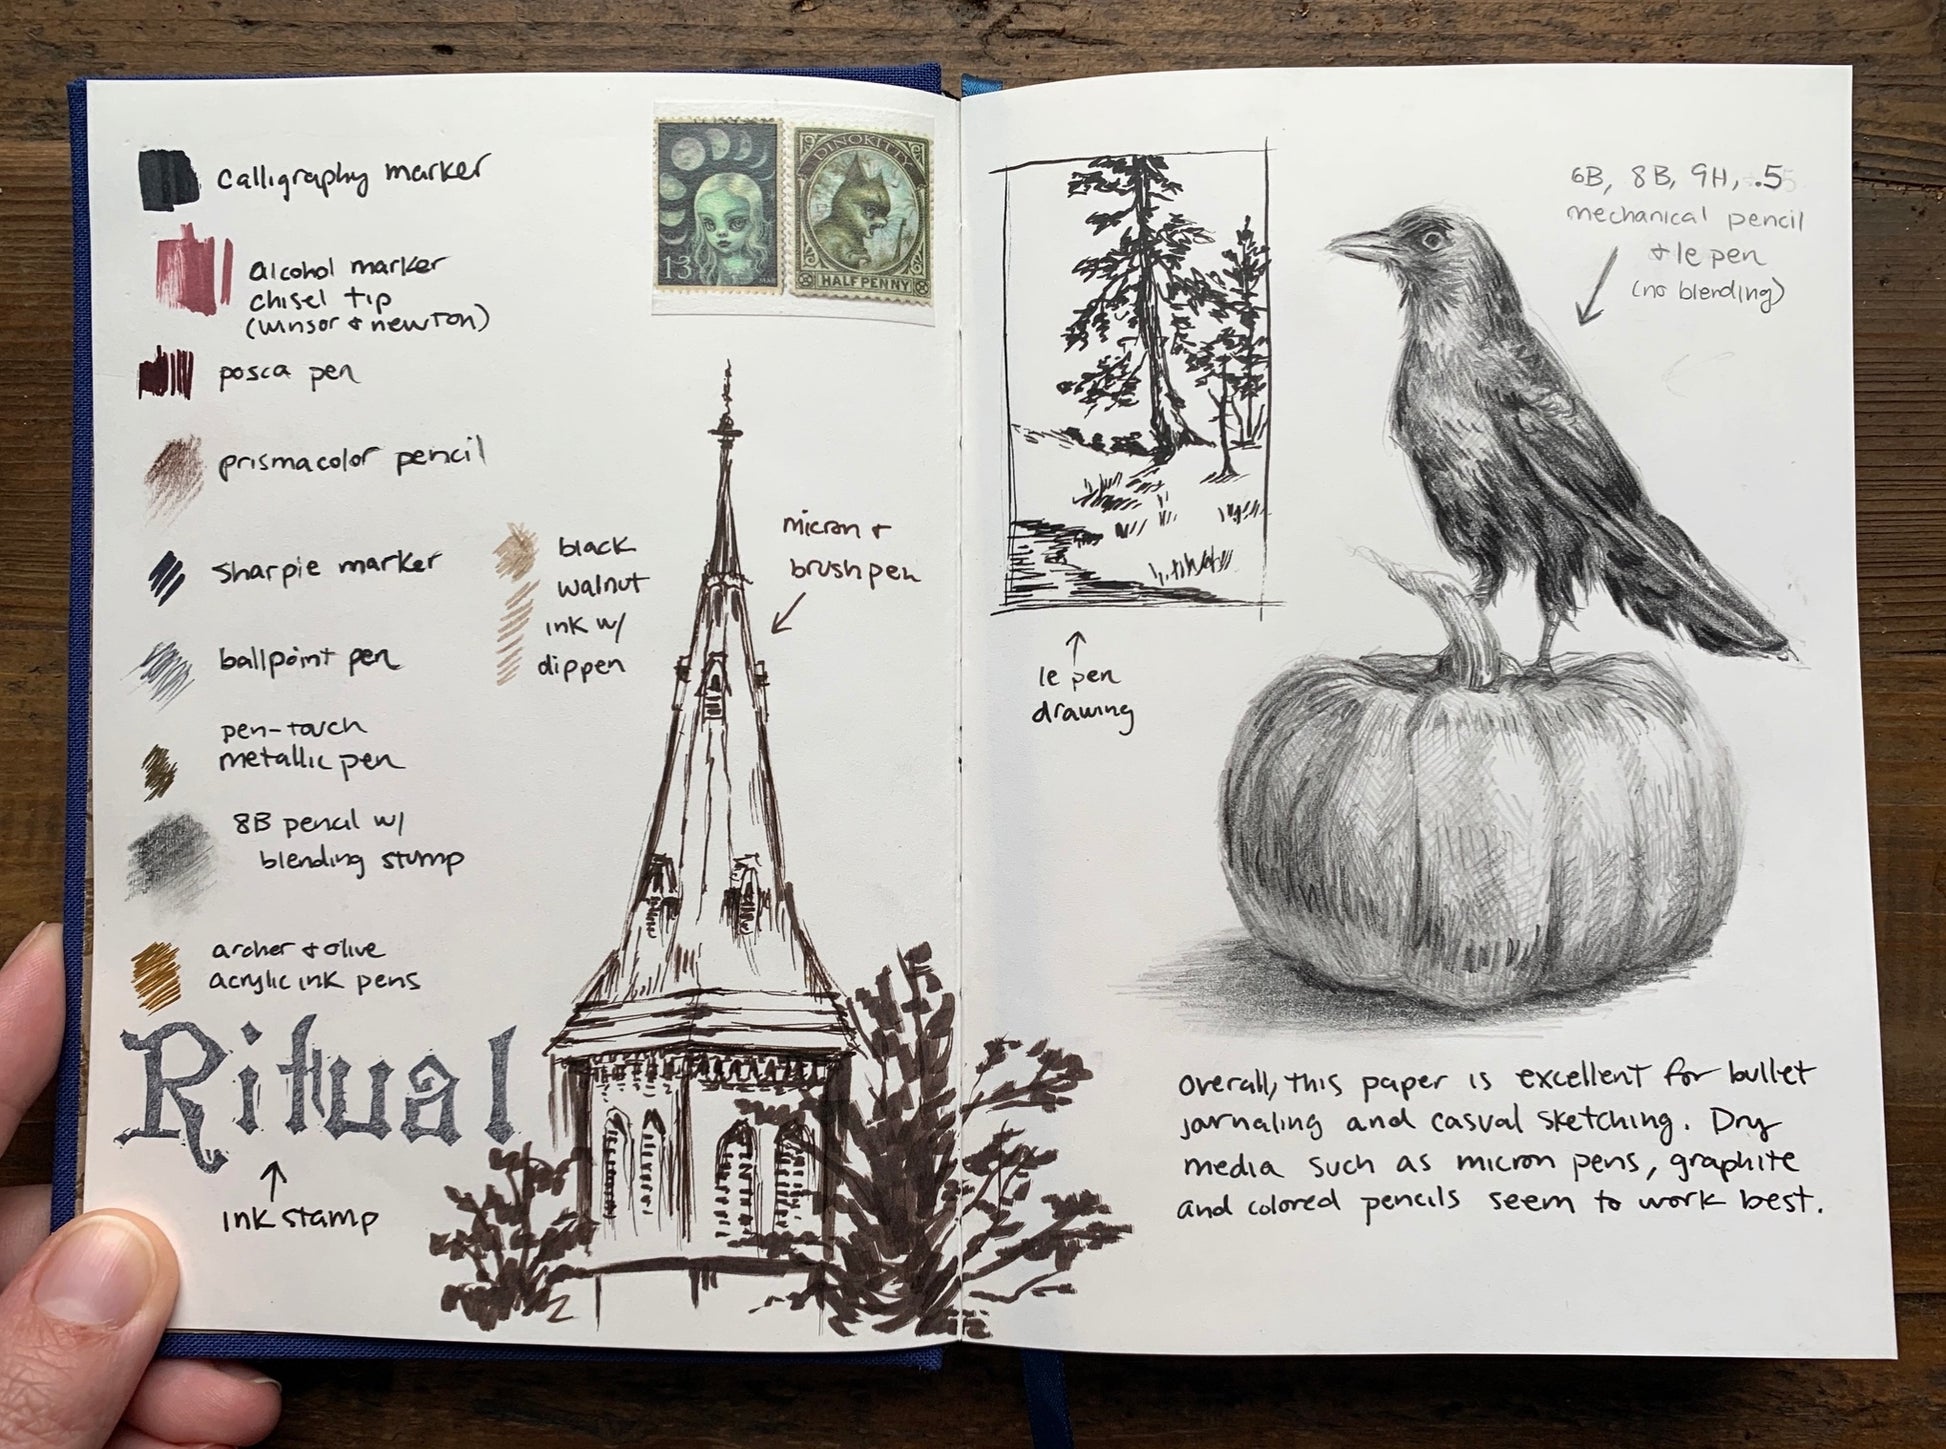 calligraphy marker
alcohol marker
chisel tip
(winsor & newton)
posca pen
prismacolor pencil
sharpie marker
ballpoint pen
pen-touch
metallic pen
8B pencil w/
blending stump
archer & olive
acrylic ink pens
Ritual
ink stamp
13
DINOKITTY
HALFPENNY
black
walnut
ink w/
dip pen
micron &
brush pen
le pen
drawing
6B, 8B, 9H, .5
mechanical pencil
& le pen
(no blending)
Overall, this paper is excellent for bullet
jornaling and casual sketching. Dry
media such as micron pens, graphite
and colored pencils seem to work best.